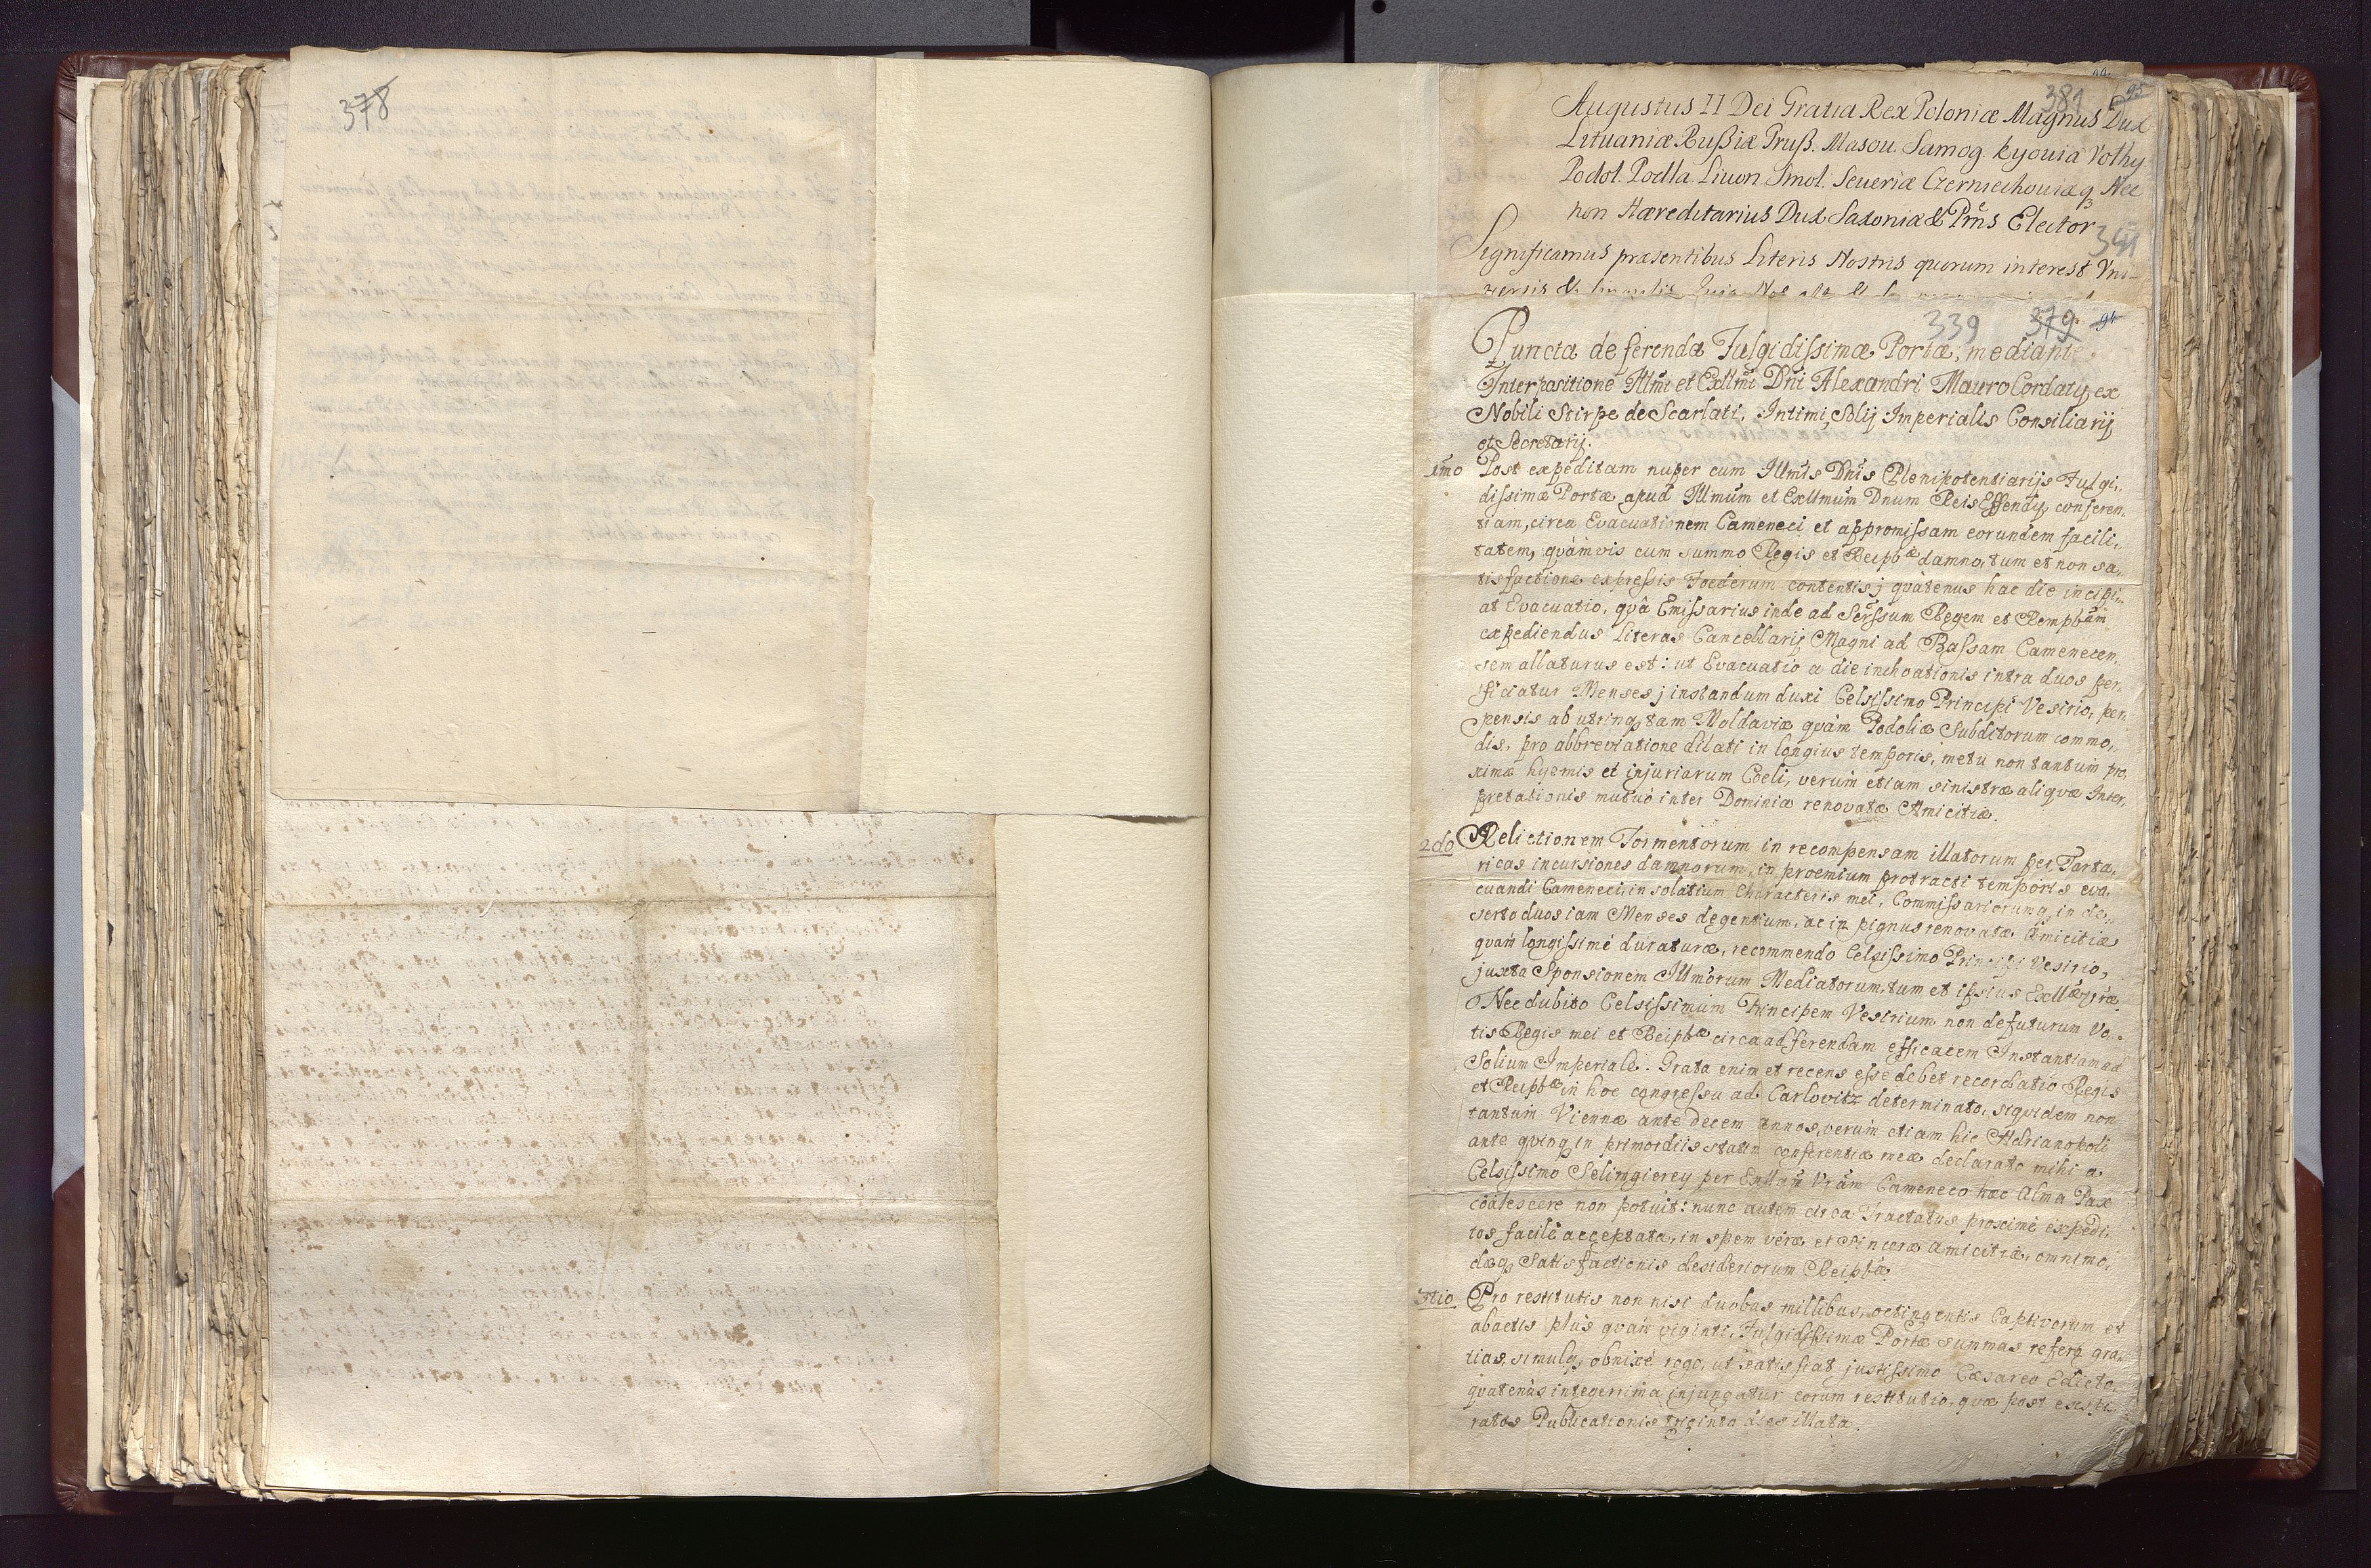 378
381
95
Augustus II Dei Gratia Rex Poloniæ Magnus Dux
Lituaniæ Rußiæ Pruß. Masou. Samog. Kyouia Volhy
Podol. Podla. Liuon Smol. Seueriæ Czerniechouiæq3 Nec
non Hæreditarius Dux Saxoniæ & Prns Elector
341
Significamus præsentibus Literis Nostris quorum interest Vni-
339 379 94
Puncta deferenda Fulgidissimæ Portæ, mediante
Interpositione Illmi et Exllmi Dni Alexandri MauroCordaty ex
Nobili Stirpe de Scarlati, Intimi Solij Imperialis Consiliarij
et Secretarij.
1mo Post expeditam nuper cum Illmis Dnis Plenipotentiarijs Fulgi-
dissimæ Portæ apud Illmum et Exllmum Dnum Reis Effendy conferen-
tiam, circa Evacuationem Cameneci et appromissam eorundem facili-
tatem, quàmvis cum summo Regis et Reipbæ damno, tum et non sa-
tisfactione expressis Foederum contentis; quàtenus hac die incipi-
at Evacuatio, quâ Emissarius inde ad Serssum Regem et Rempbam
expediendus Literas Cancellarij Magni ad Bassam Camenecen-
sem allaturus est: ut Evacuatio a die inchoationis intra duos per-
ficiatur Menses; instandum duxi Celsissimo Principi Vesirio, per-
pensis ab utrinq3 tam Moldaviæ quàm Podoliæ Subditorum commo-
dis, pro abbreviatione dilati in longius temporis, metu non tantum pro-
ximæ hyemis et injuriarum Coeli, verum etiam sinistræ aliquæ Inter-
pretationis mutuò inter Dominia renovatæ Amicitiæ.
2do Relictionem Tormentorum in recompensam illatorum per Tarta-
ricas incursiones damnorum, in proemium protracti temporis eva-
cuandi Cameneci, in solatium Characteris mei, Commissariorumq3 in de-
serto duos iam Menses degentium, ac in pignus renovatæ Amicitiæ
quàm longissimè duraturæ, recommendo Celsissimo Principi Vesirio,
juxta Sponsionem Illmorum Mediatorum, tum et ipsius Exllæ Vræ.
Nec dubito Celsissimum Principem Vesirium non defuturum Vo-
tis Regis mei et Reipbæ circa adferendam efficacem Instantiam ad
Solium Imperiale. Grata enim et recens esse debet recordatio Regis
et Reipbæ in hoc congressu ad Carlovitz determinato, siquidem non
tantùm Viennæ ante decem annos, verùm etiam hic Adrianopoli
ante quinq3 in primordiis statim conferentiæ meæ declarato mihi a
Celsissimo Selimgierey per Exllam Vram Cameneco hæc Alma Pax
coalescere non potuit: nunc autem circa Tractatus proximè expedi-
tos facilè acceptata, in spem veræ et sinceræ Amicitiæ, omnimo-
dæq3 Satisfactionis desideriorum Reipbæ.
3tio Pro restitutis non nisi duobus millibus, octingentis Captivorum et
abactis plus quàm viginti, Fulgidissimæ Portæ summas refero gra-
tias, simulq3 obnixè rogo, ut satis fiat justissimo Cæsareo Edicto,
quatenùs integerrima injungatur eorum restitutio, quæ post expi-
ratos Publicationis triginta dies illata.